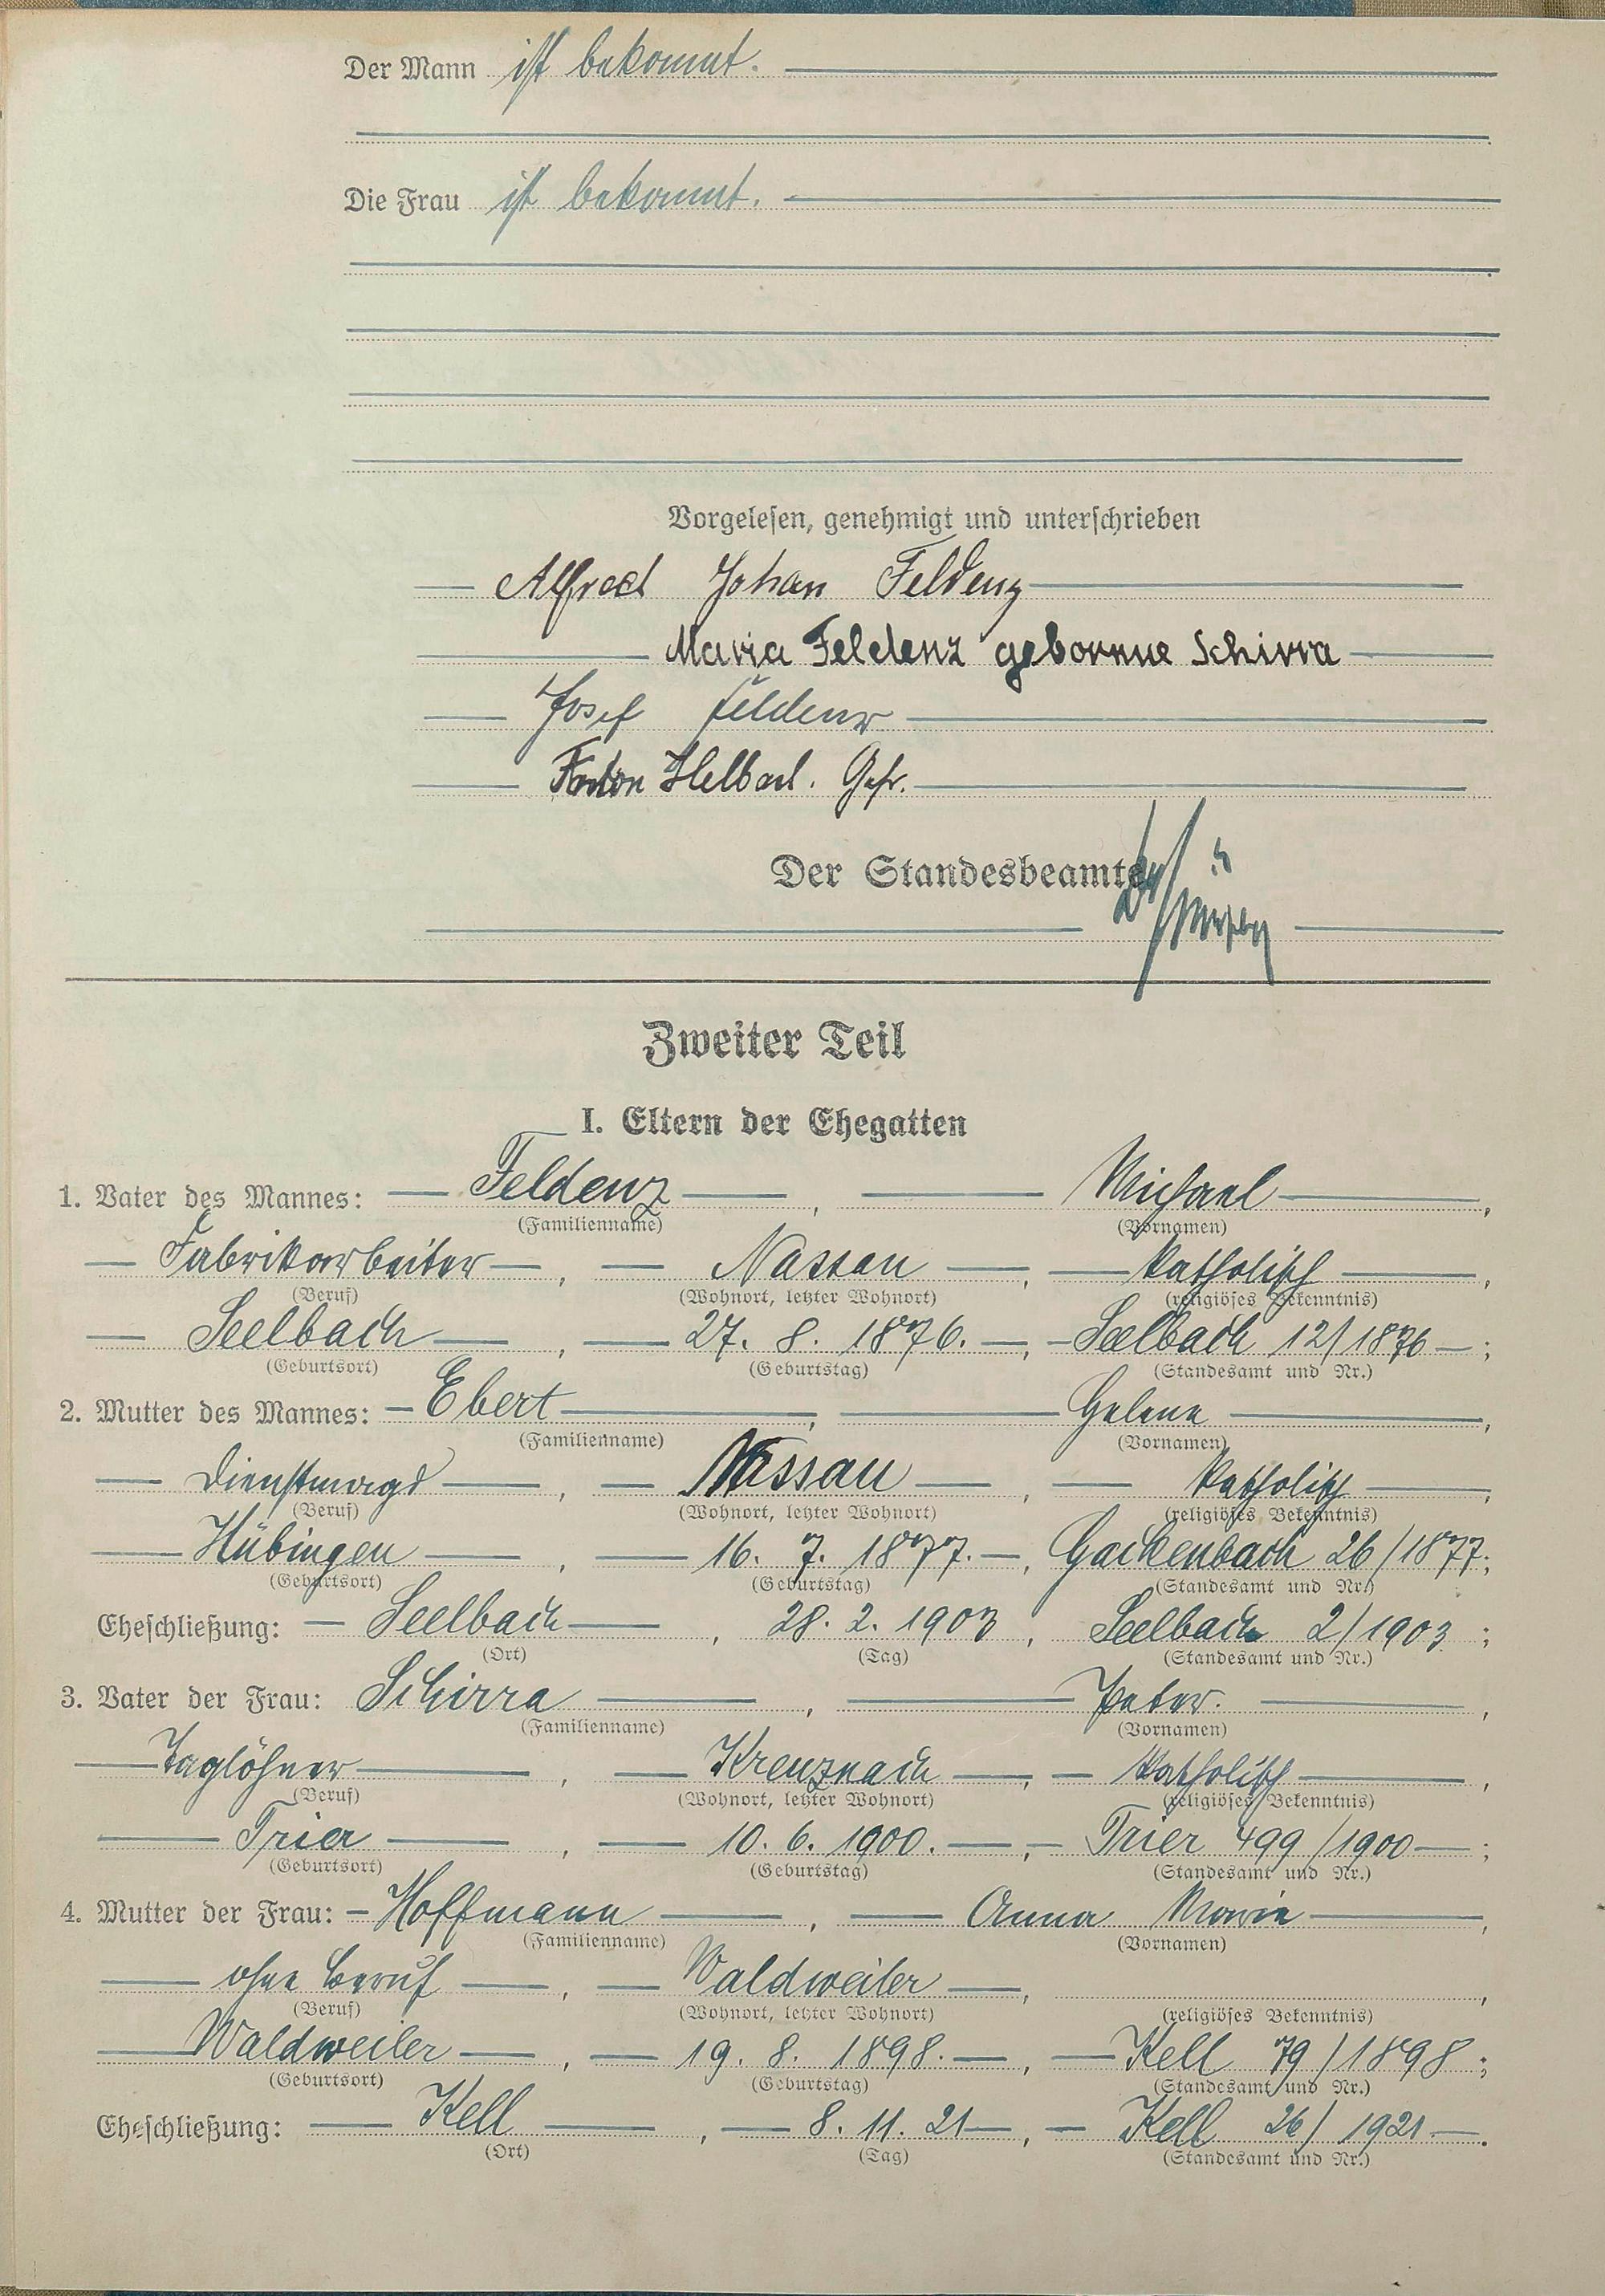 Der Mann ist bekannt.
Die Frau ist bekannt.
Vorgelesen, genehmigt und unterschrieben
Alfred Johan Feldenz
Maria Feldenz gebornne Schirra
Josef Feldenz
Helbach. Gefr.
Der Standesbeamte
Zweiter Teil
I. Eltern der Ehegatten
1. Vater des Mannes: Feldenz, Michael,
(Familienname) (Vornamen)
Fabrikarbeiter, Nassau, katholisch,
(Beruf) (Wohnort, letzter Wohnort) (religiöses Bekenntnis)
Seelbach, 27. 8. 1876., Seelbach 12/1876;
(Geburtsort) (Geburtstag) (Standesamt und Nr.)
2. Mutter des Mannes: Ebert, Helene,
(Familienname) (Vornamen)
Dienstmagd, Nassau, katholisch,
(Beruf) (Wohnort, letzter Wohnort) (religiöses Bekenntnis)
Hübingen, 16. 7. 1877., Gackenbach 26/1877;
(Geburtsort) (Geburtstag) (Standesamt und Nr.)
Eheschließung: Seelbach, 28. 2. 1903, Seelbach 2/1903;
(Ort) (Tag) (Standesamt und Nr.)
3. Vater der Frau: Schirra, Peter.,
(Familienname) (Vornamen)
Taglöhner, Kreuznach, katholisch,
(Beruf) (Wohnort, letzter Wohnort) (religiöses Bekenntnis)
Trier, 10. 6. 1900., Trier 499/1900;
(Geburtsort) (Geburtstag) (Standesamt und Nr.)
4. Mutter der Frau: Hoffmann, Anna Maria,
(Familienname) (Vornamen)
ohne Beruf, Waldweiler,
(Beruf) (Wohnort, letzter Wohnort) (religiöses Bekenntnis)
Waldweiler, 19. 8. 1898., Kell 79/1898;
(Geburtsort) (Geburtstag) (Standesamt und Nr.)
Eheschließung: Kell, 8. 11. 21, Kell 26/1921.
(Ort) (Tag) (Standesamt und Nr.)